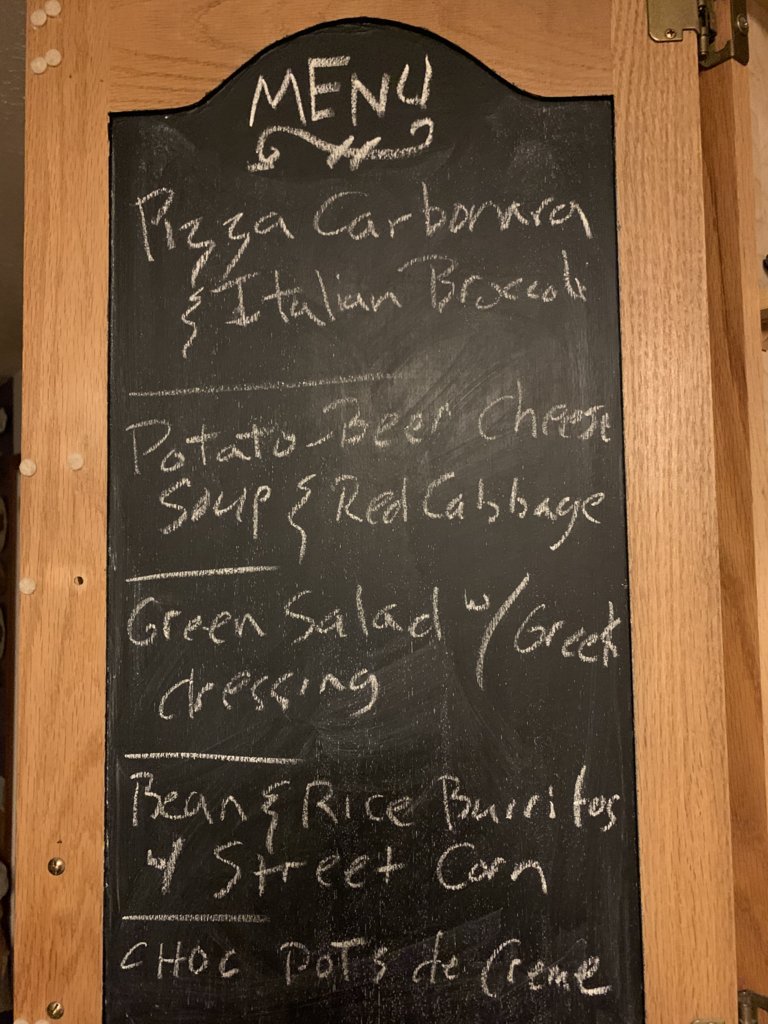 MENU
Pizza Carbonara
& Italian Broccoli
Potato-Beer Cheese
Soup & Red Cabbage
Green Salad w/ Greek
dressing
Bean & Rice Burritos
w/ Street Corn
CHOC POTS de Creme